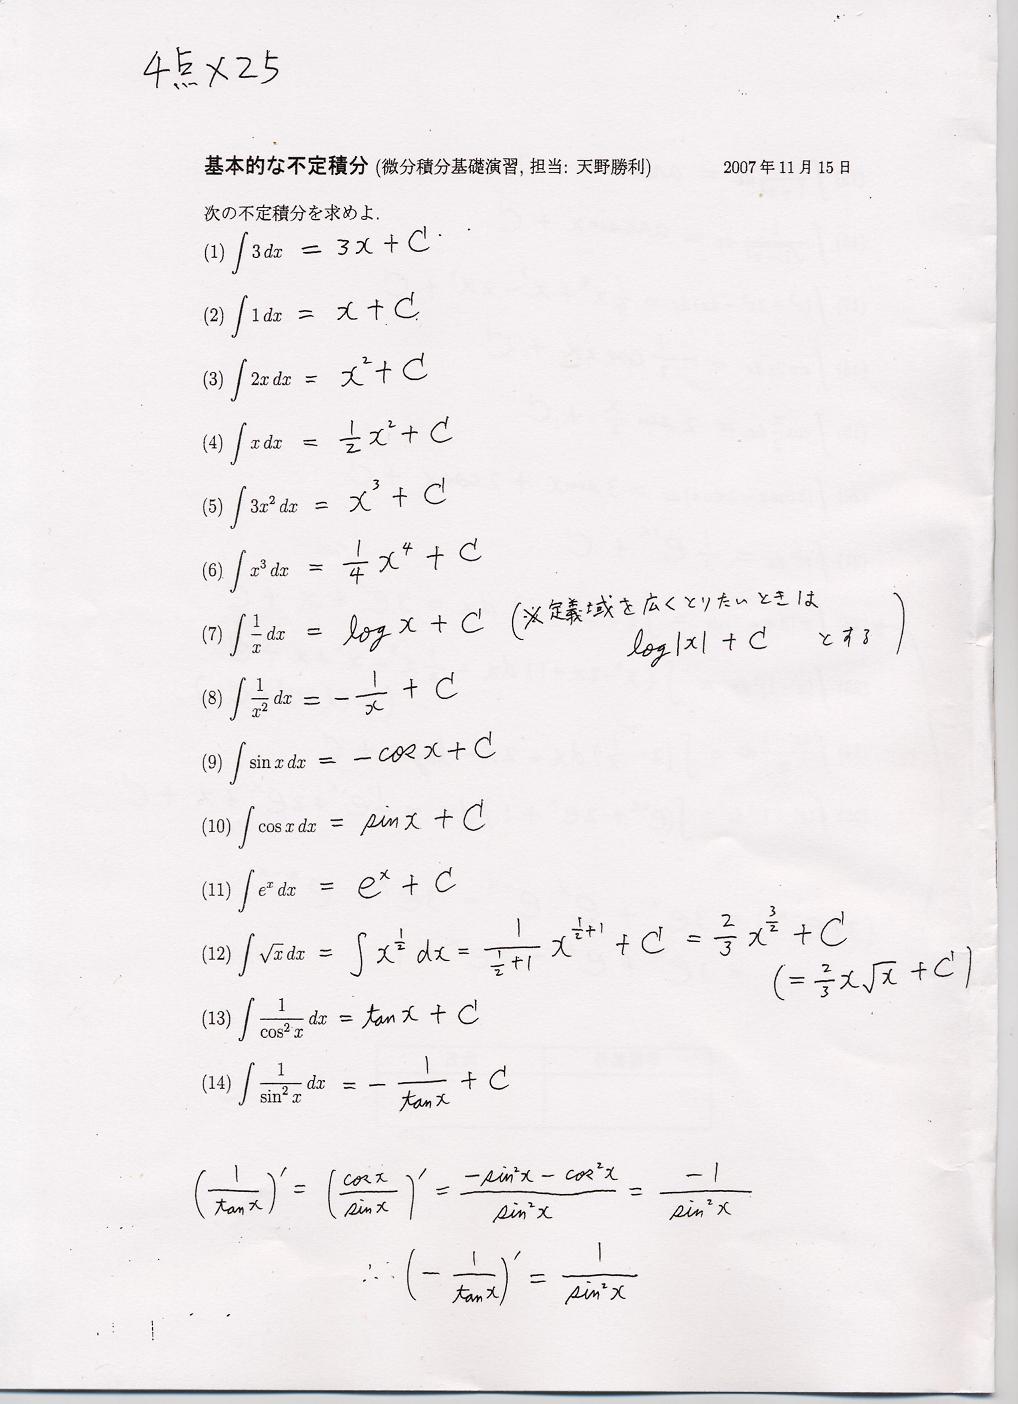 4点×25
基本的な不定積分 (微分積分基礎演習, 担当: 天野勝利) 2007年11月15日
次の不定積分を求めよ.
(1) ∫ 3 dx = 3x + C
(2) ∫ 1 dx = x + C
(3) ∫ 2x dx = x² + C
(4) ∫ x dx = 1/2 x² + C
(5) ∫ 3x² dx = x³ + C
(6) ∫ x³ dx = 1/4 x⁴ + C
(7) ∫ 1/x dx = log x + C (※定義域を広くとりたいときは
log|x| + C とする)
(8) ∫ 1/x² dx = − 1/x + C
(9) ∫ sin x dx = − cos x + C
(10) ∫ cos x dx = sin x + C
(11) ∫ eˣ dx = eˣ + C
(12) ∫ √x dx = ∫ x^(1/2) dx = 1/(1/2+1) x^(1/2+1) + C = 2/3 x^(3/2) + C
(= 2/3 x√x + C)
(13) ∫ 1/cos² x dx = tan x + C
(14) ∫ 1/sin² x dx = − 1/tan x + C
(1/tan x)′ = (cos x/sin x)′ = (−sin²x − cos²x)/sin²x = −1/sin²x
∴ (− 1/tan x)′ = 1/sin²x